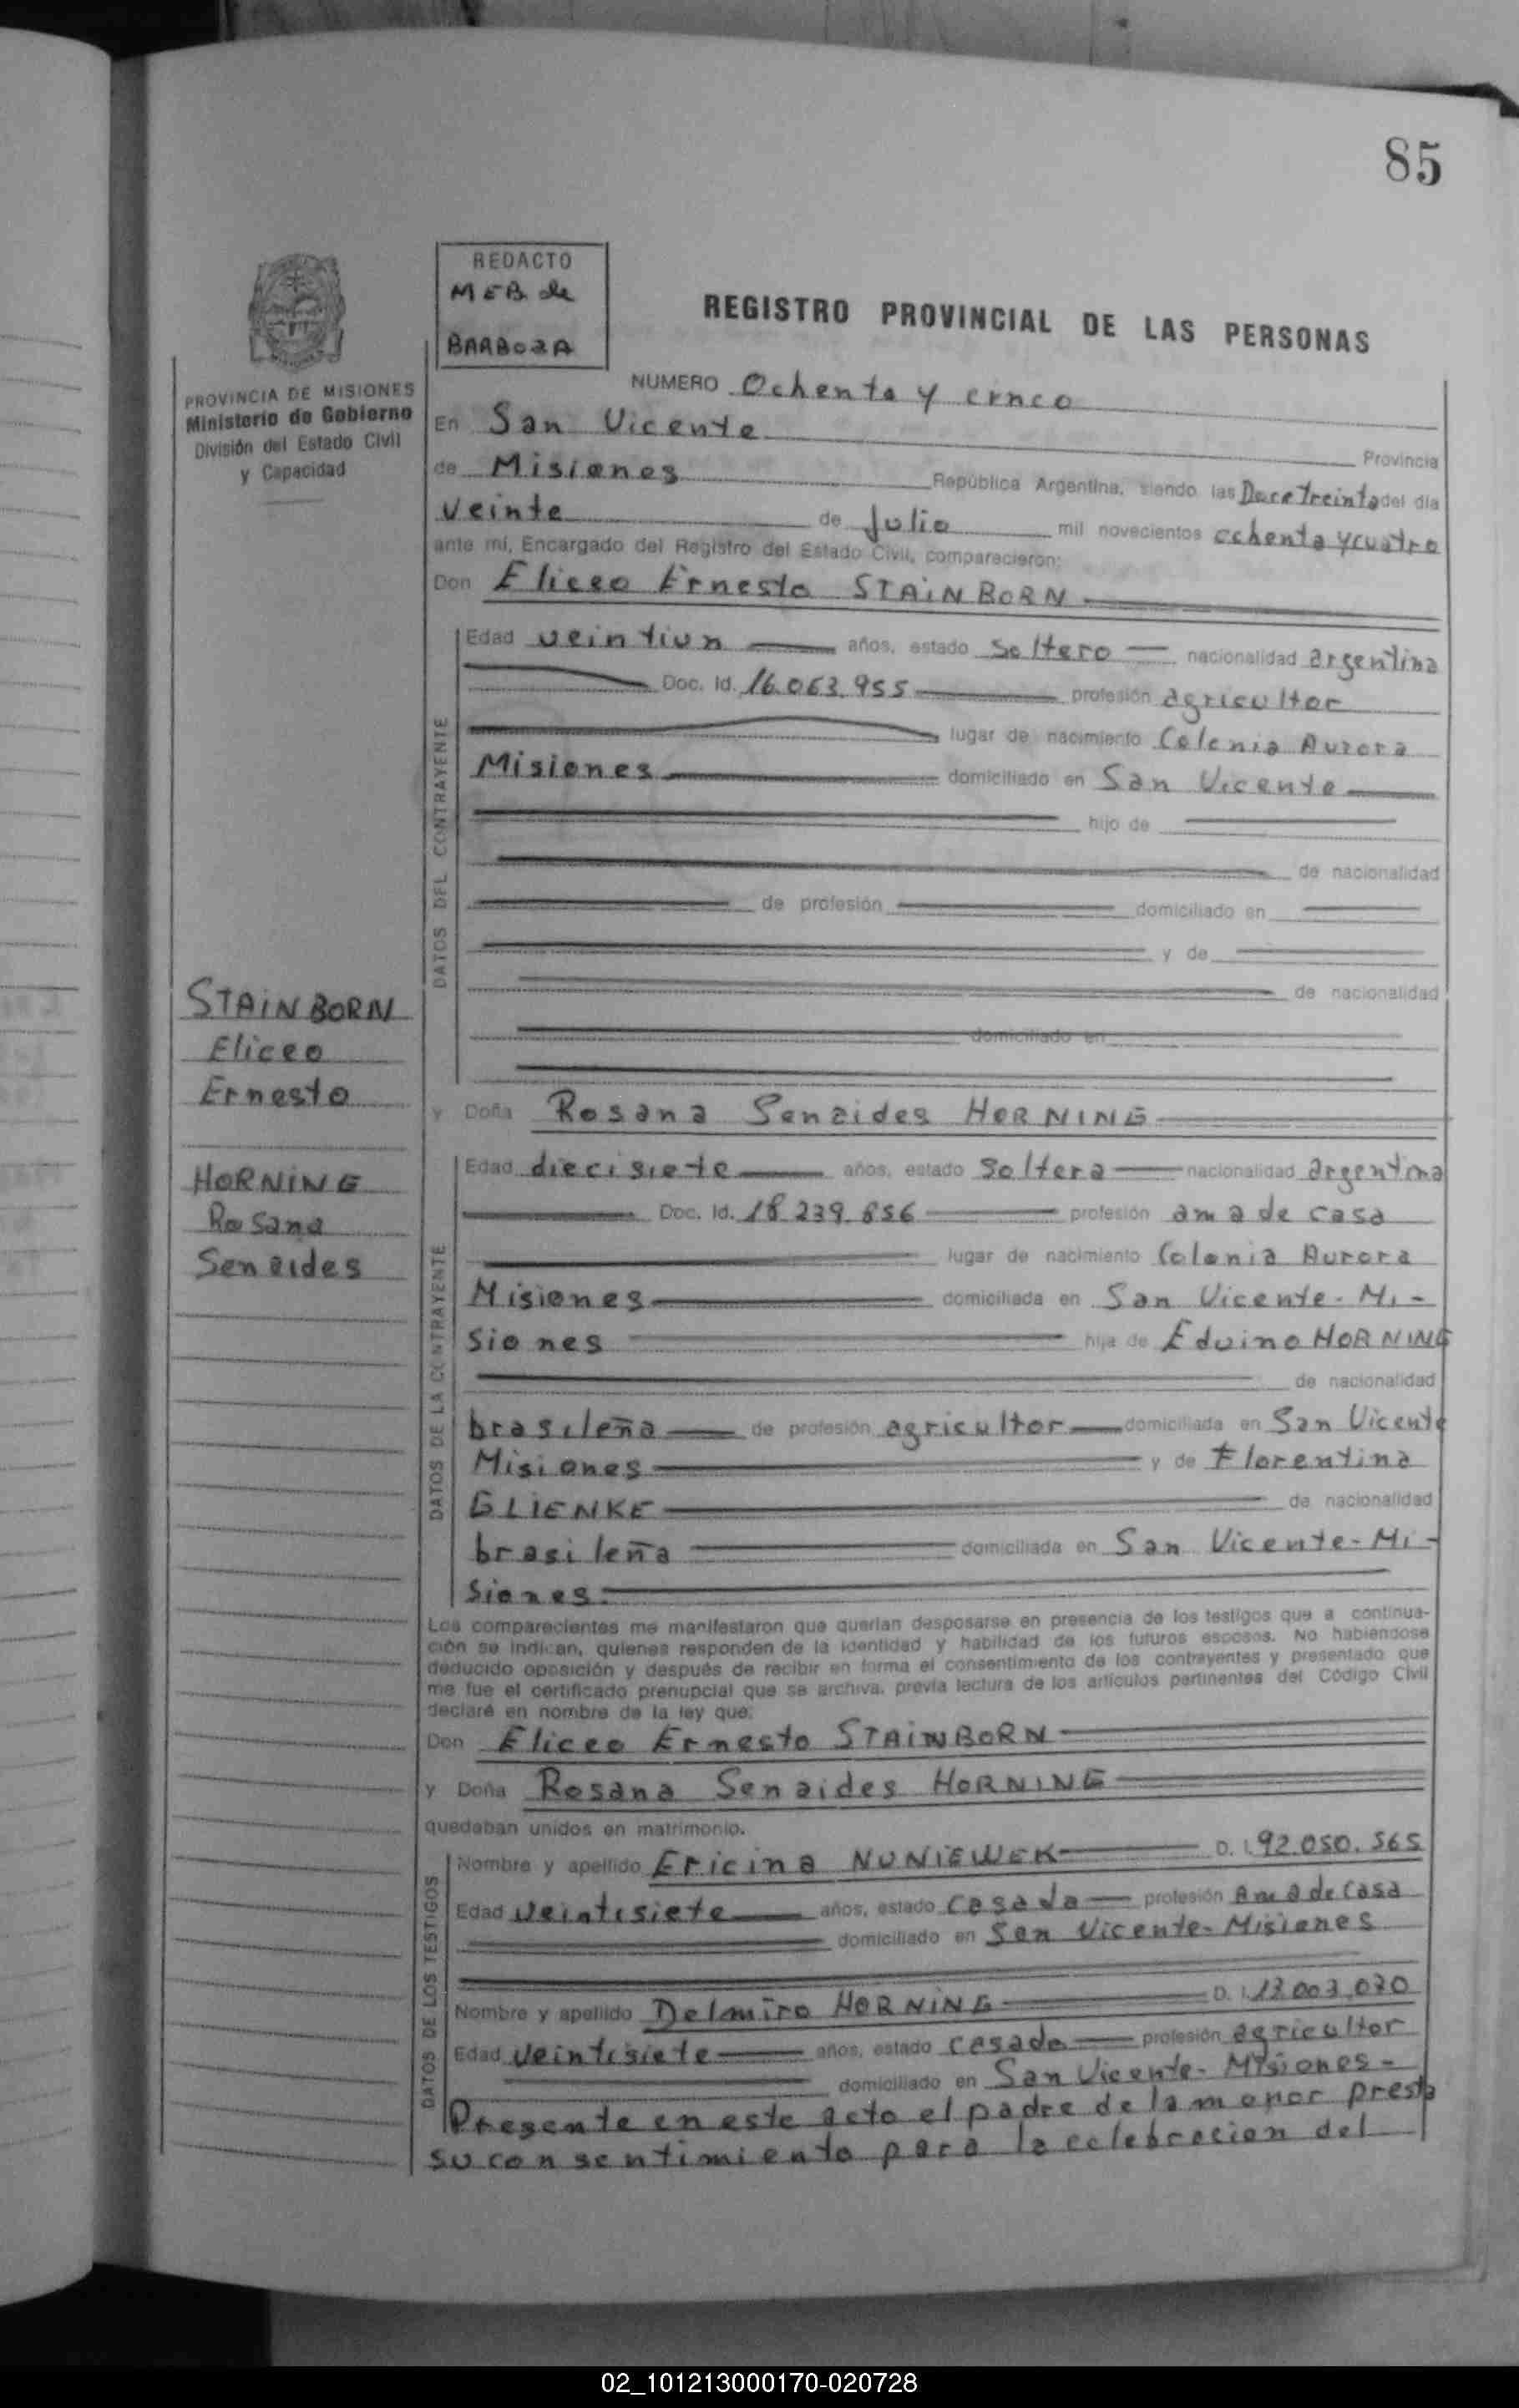 85
REDACTO
MEB de
BARBOZA
REGISTRO PROVINCIAL DE LAS PERSONAS
PROVINCIA DE MISIONES
Ministerio de Gobierno
División del Estado Civil
y Capacidad
NUMERO Ochenta y cinco
En San Vicente Provincia
de Misiones República Argentina, siendo las Doce Treinta del día
veinte de Julio mil novecientos ochenta y cuatro
ante mí, Encargado del Registro del Estado Civil, comparecieron:
Don Eliceo Ernesto STAINBORN
DATOS DEL CONTRAYENTE
Edad veintiun años, estado soltero nacionalidad argentina
Doc. Id. 16.063.955 profesión agricultor
lugar de nacimiento Colonia Aurora
Misiones domiciliado en San Vicente
hijo de
de nacionalidad
de profesión domiciliado en
y de
de nacionalidad
domiciliado en
STAINBORN
Eliceo
Ernesto
y Doña Rosana Senaides HORNING
HORNING
Rosana
Senaides
DATOS DE LA CONTRAYENTE
Edad diecisiete años, estado soltera nacionalidad argentina
Doc. Id. 18.239.856 profesión ama de casa
lugar de nacimiento Colonia Aurora
Misiones domiciliada en San Vicente - Mi-
siones hija de Eduino HORNING
de nacionalidad
brasileña de profesión agricultor domiciliada en San Vicente
Misiones y de Florentina
GLIENKE de nacionalidad
brasileña domiciliada en San Vicente - Mi-
siones.
Los comparecientes me manifestaron que querían desposarse en presencia de los testigos que a continua-
ción se indican, quienes responden de la identidad y habilidad de los futuros esposos. No habiéndose
deducido oposición y después de recibir en forma el consentimiento de los contrayentes y presentado que
me fue el certificado prenupcial que se archiva, previa lectura de los artículos pertinentes del Código Civil
declaré en nombre de la ley que:
Don Eliceo Ernesto STAINBORN
y Doña Rosana Senaides HORNING
quedaban unidos en matrimonio.
DATOS DE LOS TESTIGOS
Nombre y apellido Ericina NUNIEWEK D. I. 92.050.565
Edad veintisiete años, estado casada profesión Ama de Casa
domiciliado en San Vicente - Misiones
Nombre y apellido Delmiro HORNING D. I. 13.003.030
Edad veintisiete años, estado casado profesión agricultor
domiciliado en San Vicente - Misiones -
Presente en este acto el padre de la menor presta
su consentimiento para la celebracion del
02_101213000170-020728